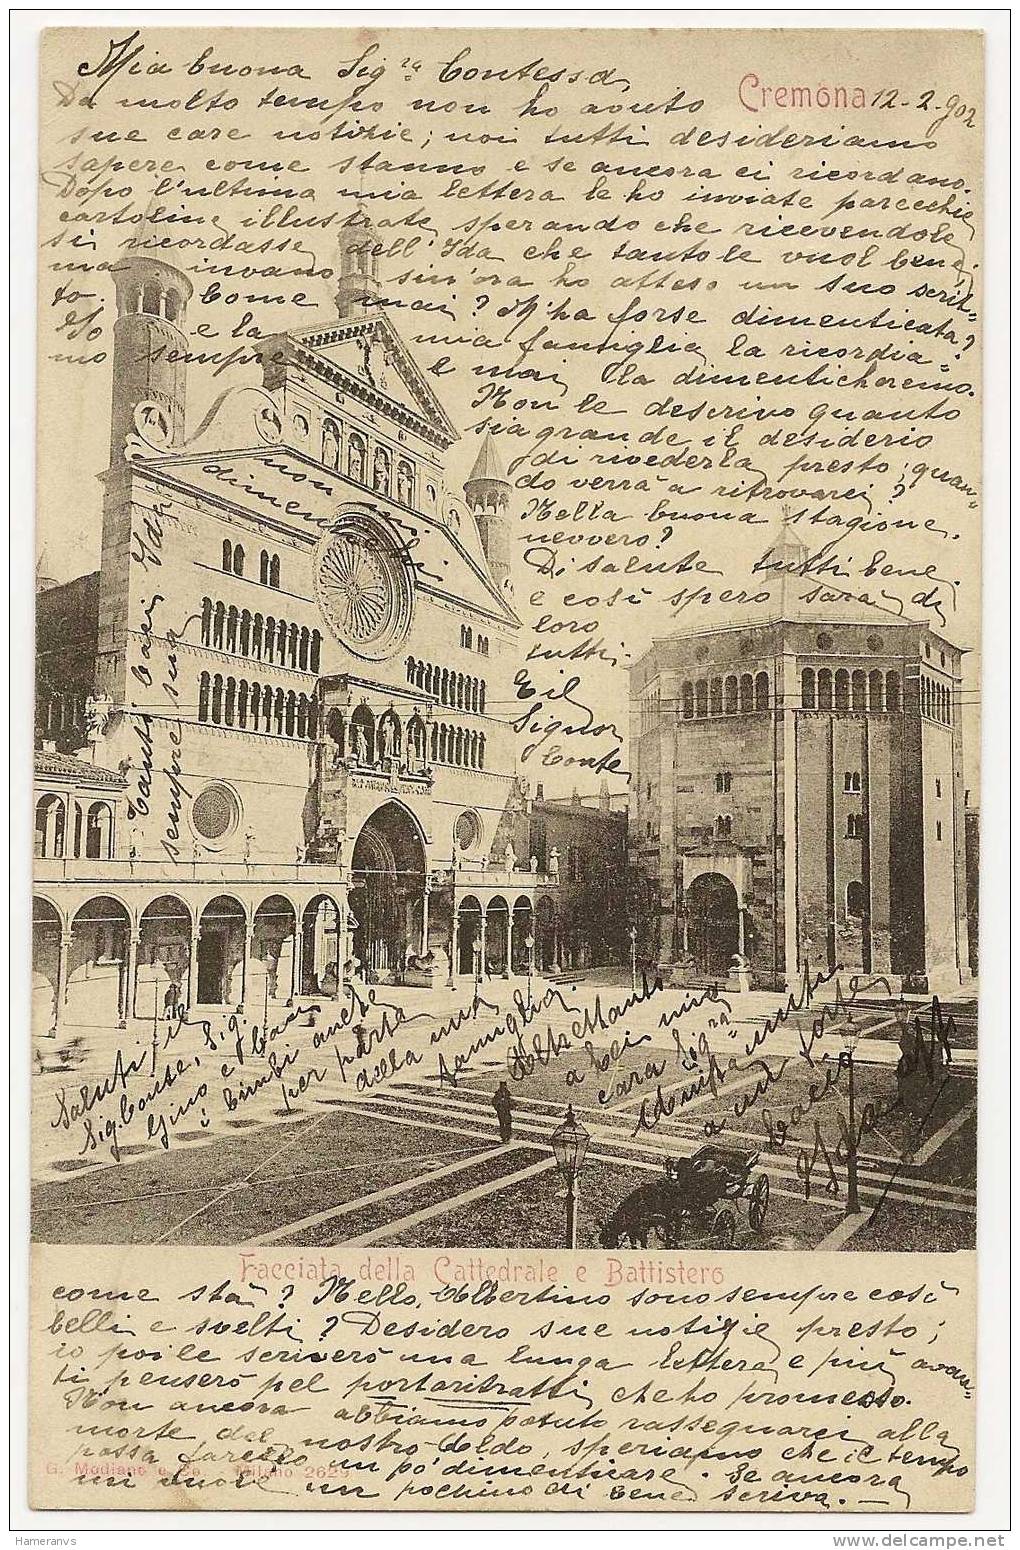 Mia buona Sig.ra Contessa,
Cremona 12-2-902
Da molto tempo non ho avuto
sue care notizie; noi tutti desideriamo
sapere come stanno e se ancora ci ricordano.
Dopo l'ultima mia lettera le ho inviate parecchie
cartoline illustrate, sperando che ricevendole
si ricordasse dell'Ida che tanto le vuol bene,
ma invano, sin'ora ho atteso un suo scrit-
to. Come mai? M'ha forse dimenticata?
Io e la mia famiglia la ricordia-
mo sempre e mai la dimenticheremo.
Non le descrivo quanto
sia grande il desiderio
di rivederla presto; quan-
do verrà a ritrovarci?
Nella buona stagione,
nevvero?
Di salute tutti bene,
e così spero sarà di
loro
tutti.
E il
Signor
Conte,
come sta? Nello, Albertino sono sempre così
belli e svelti? Desidero sue notizie presto;
io poi le scriverò una lunga lettera, e più avan-
ti penserò pel portaritratti, che ho promesso.
Non ancora abbiamo potuto rassegnarci alla
morte del nostro Aldo, speriamo che il tempo
possa farcelo un po' dimenticare. Se ancora
mi vuole un pochino di bene, scriva. —
non mi
dimentichi
Tanti baci, Ida
sempre sua
Saluti il
Sig. Conte, Sig.
Gino e baci
i bimbi anche
per parte
della mia
famiglia.
Altrettanto
a Lei mia
cara Sig.ra
a un forte
bacio
Ida
Facciata della Cattedrale e Battistero
G. Modiano e Co. Milano 2629
Hameranvs
www.delcampe.net